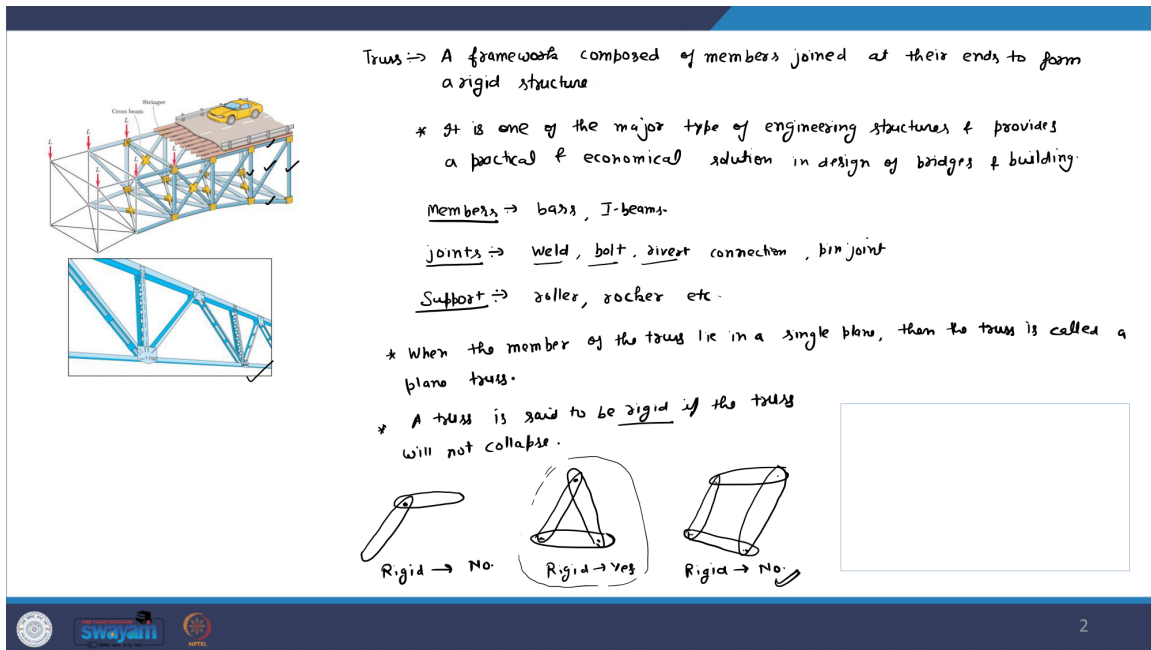 Truss :→ A framework composed of members joined at their ends to form
a rigid structure
* It is one of the major type of engineering structures & provides
a practical & economical solution in design of bridges & building.
Members → bars, I-beams.
joints :→ weld, bolt, rivert connection, pin joint
Support :→ roller, rocker etc.
* When the member of the truss lie in a single plane, then the truss is called a
plane truss.
* A truss is said to be rigid if the truss
will not collapse.
Stringer
Cross beam
L
L
L
L
L
L
Rigid → No.
Rigid → Yes
Rigid → No.
FREE ONLINE EDUCATION
swayam
NPTEL
2